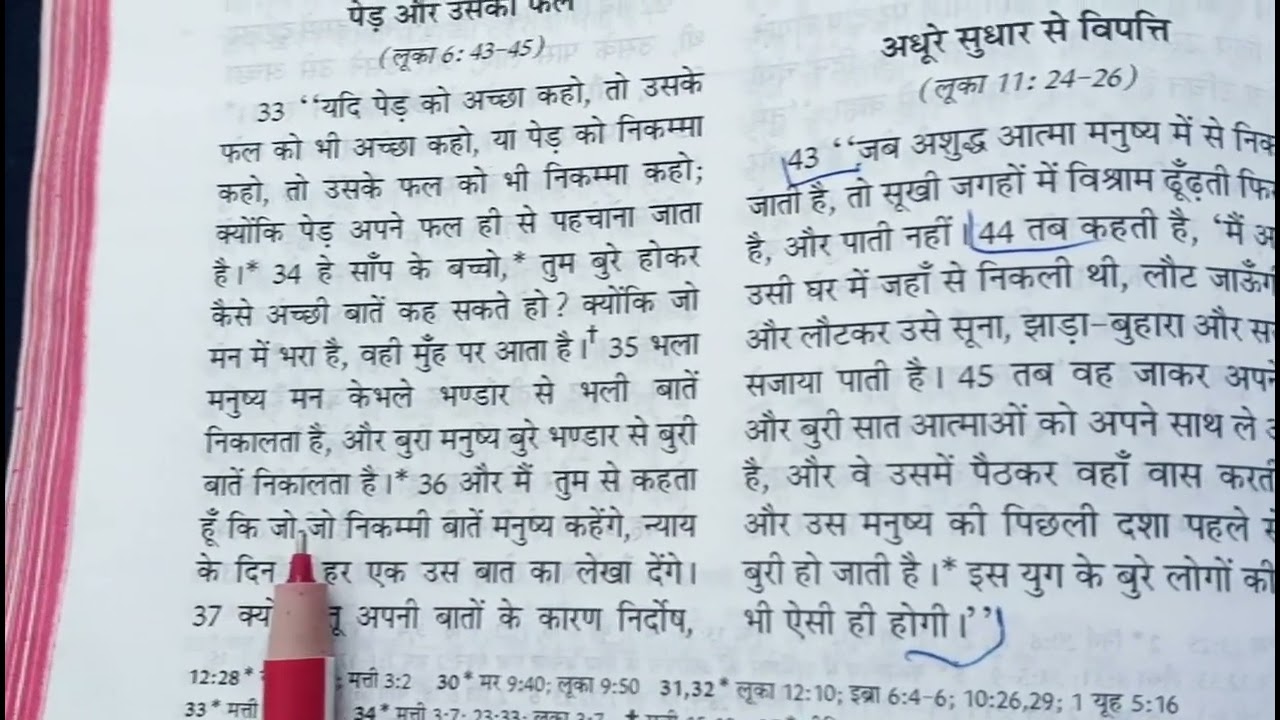 पेड़ और उसका फल
(लूका 6: 43-45)
33 ‘‘यदि पेड़ को अच्छा कहो, तो उसके
फल को भी अच्छा कहो, या पेड़ को निकम्मा
कहो, तो उसके फल को भी निकम्मा कहो;
क्योंकि पेड़ अपने फल ही से पहचाना जाता
है।* 34 हे साँप के बच्चो,* तुम बुरे होकर
कैसे अच्छी बातें कह सकते हो? क्योंकि जो
मन में भरा है, वही मुँह पर आता है।† 35 भला
मनुष्य मन केभले भण्डार से भली बातें
निकालता है, और बुरा मनुष्य बुरे भण्डार से बुरी
बातें निकालता है।* 36 और मैं तुम से कहता
हूँ कि जो-जो निकम्मी बातें मनुष्य कहेंगे, न्याय
के दिन हर एक उस बात का लेखा देंगे।
37 तू अपनी बातों के कारण निर्दोष,
अधूरे सुधार से विपत्ति
(लूका 11: 24-26)
43 ‘‘जब अशुद्ध आत्मा मनुष्य में से
जाती है, तो सूखी जगहों में विश्राम ढूँढ़ती
है, और पाती नहीं। 44 तब कहती है, ‘मैं
उसी घर में जहाँ से निकली थी, लौट
और लौटकर उसे सूना, झाड़ा-बुहारा और
सजाया पाती है। 45 तब वह जाकर
और बुरी सात आत्माओं को अपने साथ ले
है, और वे उसमें पैठकर वहाँ वास
और उस मनुष्य की पिछली दशा पहले
बुरी हो जाती है।* इस युग के बुरे लोगों की
भी ऐसी ही होगी।’’
12:28* ; मत्ती 3:2 30* मर 9:40; लूका 9:50 31,32* लूका 12:10; इब्रा 6:4-6; 10:26,29; 1 यूह 5:16
33* मत्ती 34* मत्ती 3:7; 23:33; लूका 3:7